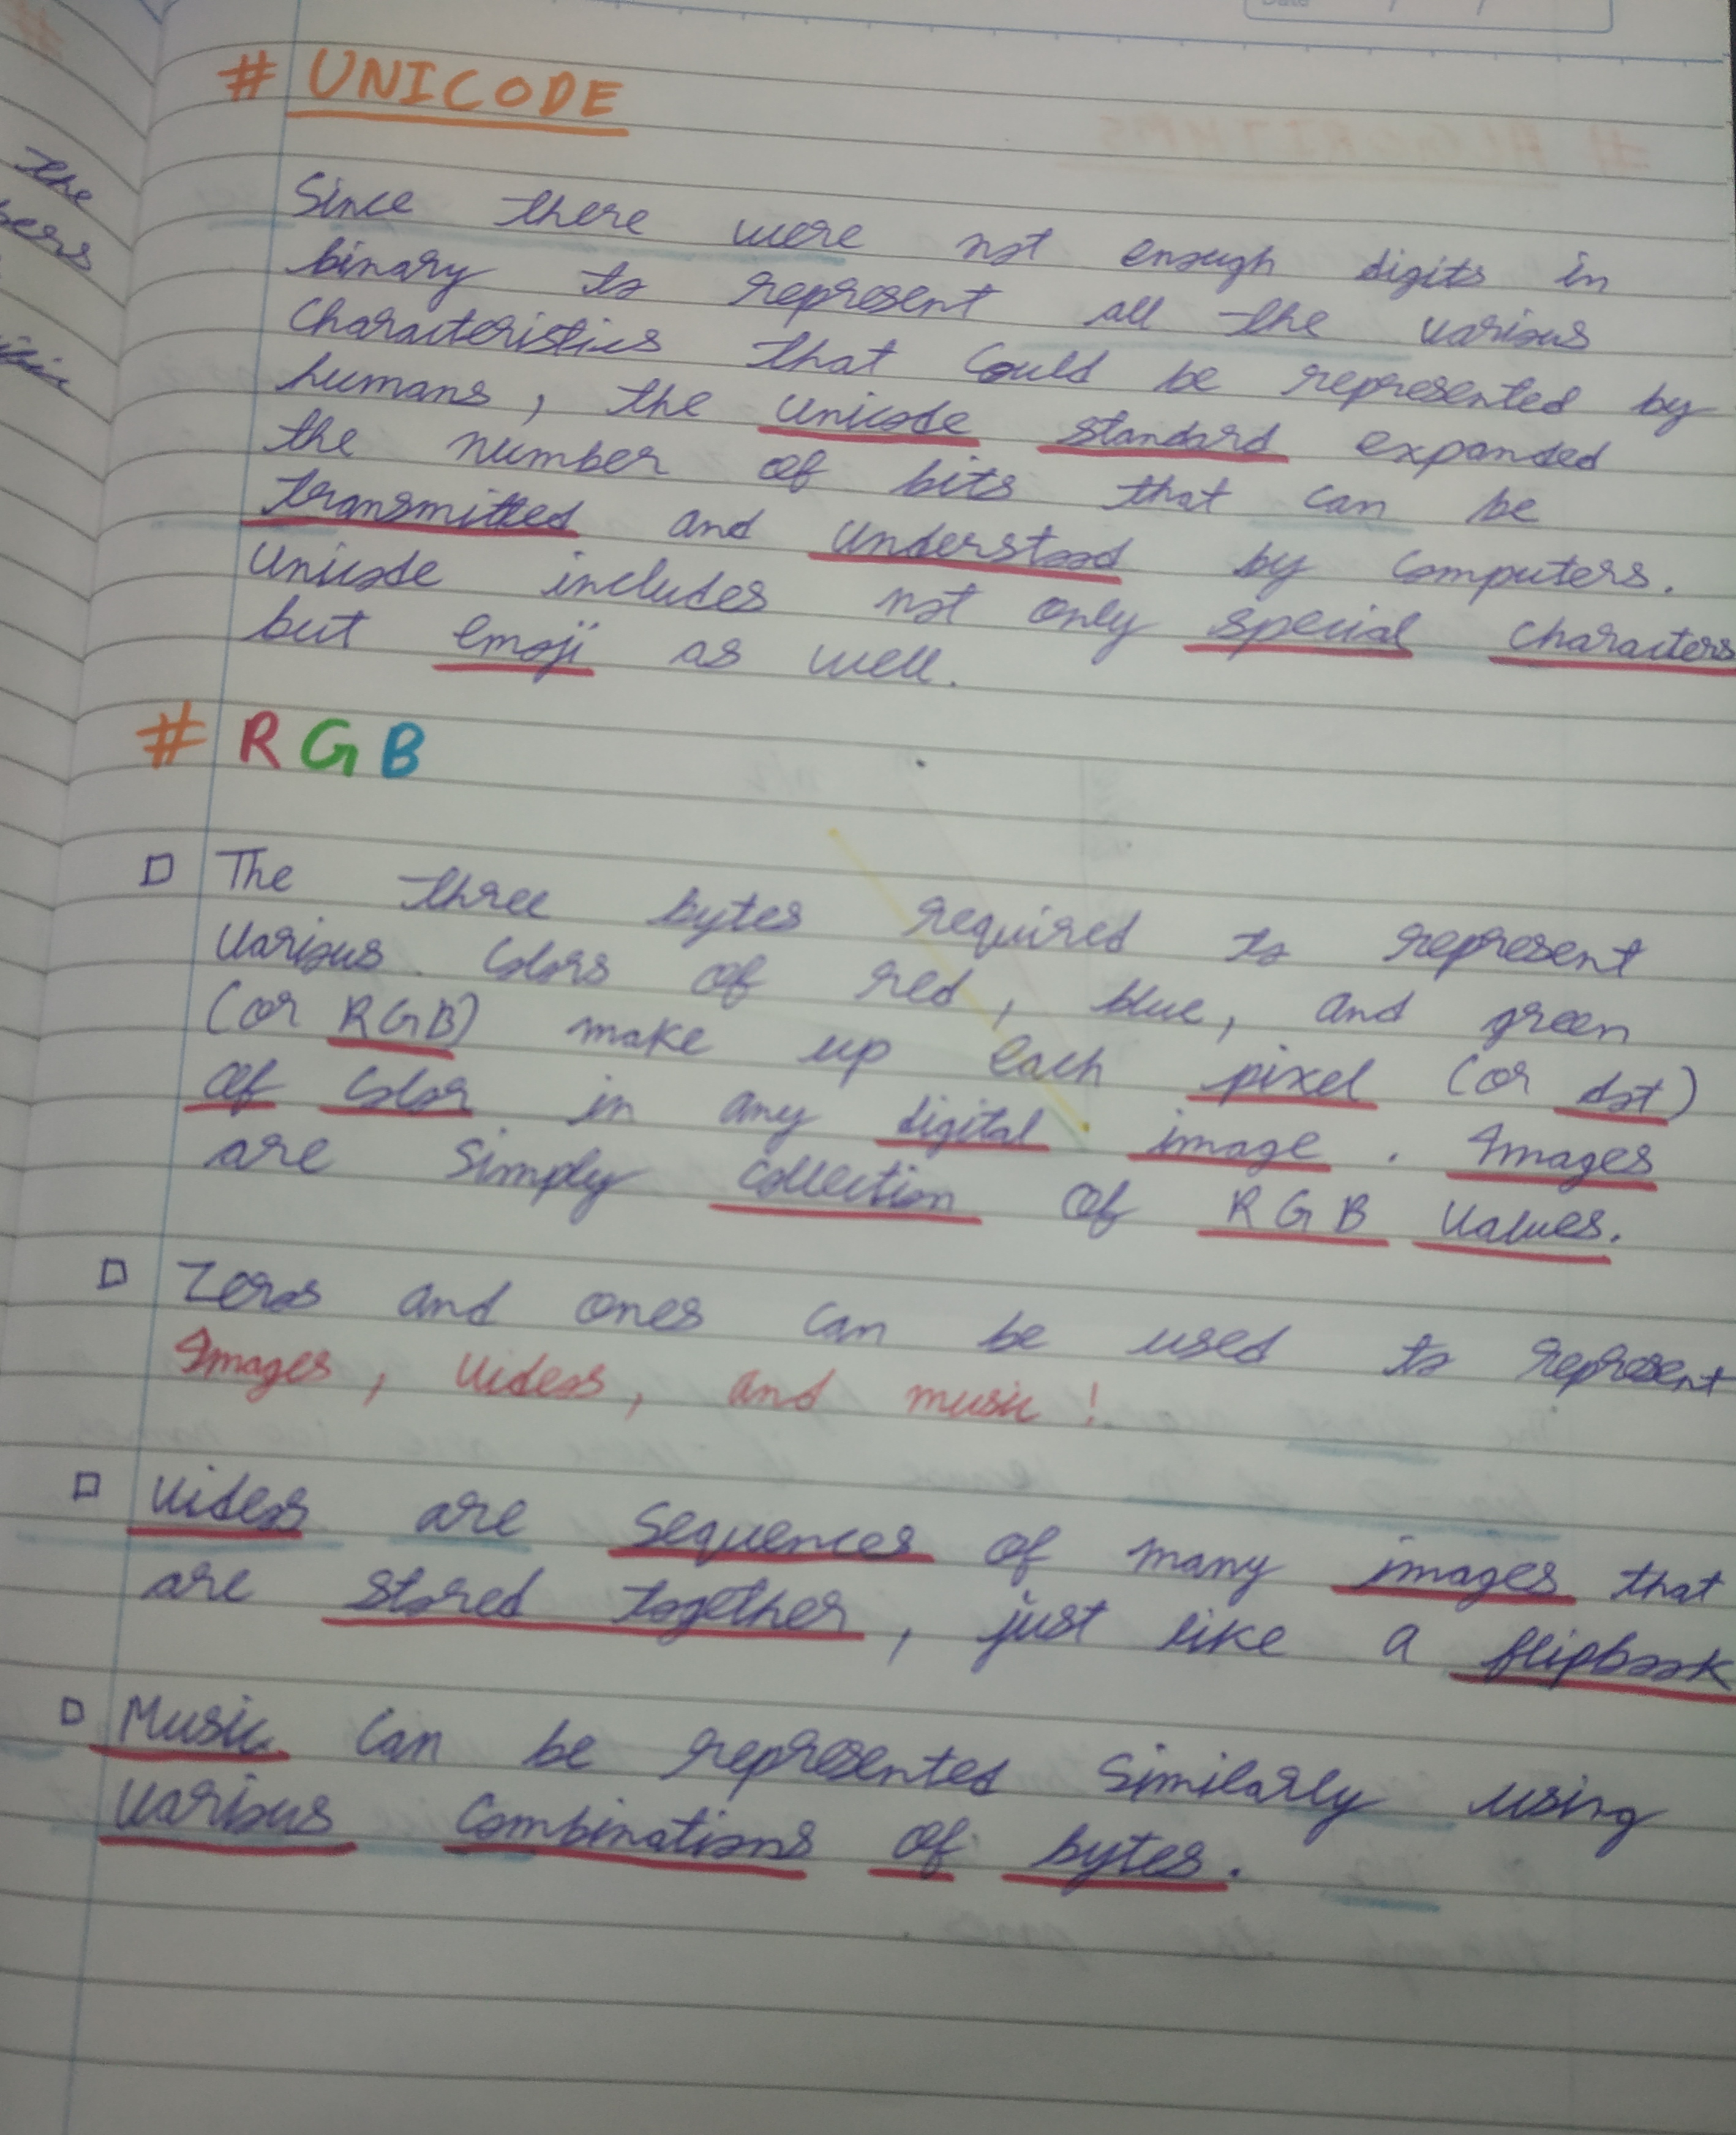 Date / /
# UNICODE
Since there were not enough digits in
binary to represent all the various
characteristics that could be represented by
humans, the unicode standard expanded
the number of bits that can be
transmitted and understood by computers.
Unicode includes not only special characters
but emoji as well.
# RGB
□ The three bytes required to represent
various colors of red, blue, and green
(or RGB) make up each pixel (or dot)
of color in any digital image. Images
are simply collection of RGB values.
□ Zeros and ones can be used to represent
Images, videos, and music!
□ Videos are sequences of many images that
are stored together, just like a flipbook
□ Music can be represented similarly using
various combinations of bytes.
the